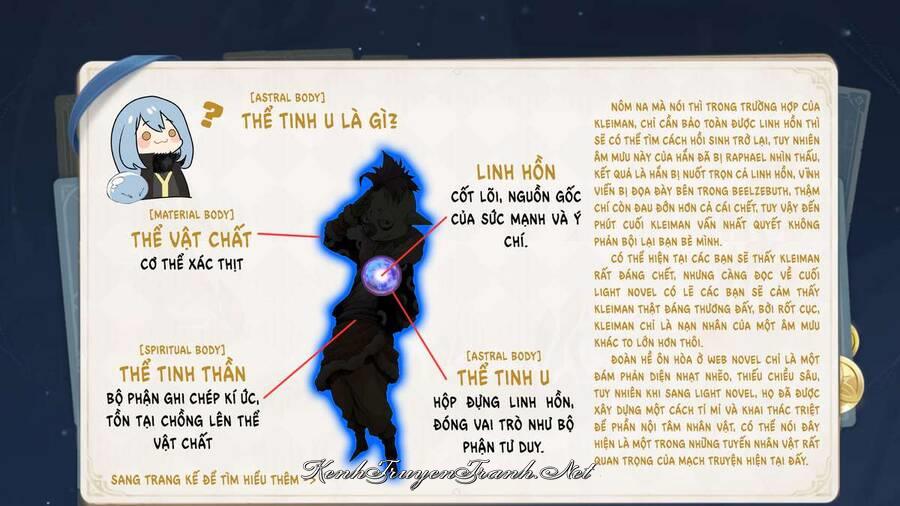 ?
[ASTRAL BODY]
THỂ TINH U LÀ GÌ?
[MATERIAL BODY]
THỂ VẬT CHẤT
CƠ THỂ XÁC THỊT
LINH HỒN
CỐT LÕI, NGUỒN GỐC
CỦA SỨC MẠNH VÀ Ý
CHÍ.
[SPIRITUAL BODY]
THỂ TINH THẦN
BỘ PHẬN GHI CHÉP KÍ ỨC,
TỒN TẠI CHỒNG LÊN THỂ
VẬT CHẤT
[ASTRAL BODY]
THỂ TINH U
HỘP ĐỰNG LINH HỒN,
ĐÓNG VAI TRÒ NHƯ BỘ
PHẬN TƯ DUY.
SANG TRANG KẾ ĐỂ TÌM HIỂU THÊM
KenhTruyenTranh.Net
NÔM NA MÀ NÓI THÌ TRONG TRƯỜNG HỢP CỦA
KLEIMAN, CHỈ CẦN BẢO TOÀN ĐƯỢC LINH HỒN THÌ
SẼ CÓ THỂ TÌM CÁCH HỒI SINH TRỞ LẠI, TUY NHIÊN
ÂM MƯU NÀY CỦA HẮN ĐÃ BỊ RAPHAEL NHÌN THẤU,
KẾT QUẢ LÀ HẮN BỊ NUỐT TRỌN CẢ LINH HỒN, VĨNH
VIỄN BỊ ĐỌA ĐÀY BÊN TRONG BEELZEBUTH, THẬM
CHÍ CÒN ĐAU ĐỚN HƠN CẢ CÁI CHẾT, TUY VẬY ĐẾN
PHÚT CUỐI KLEIMAN VẪN NHẤT QUYẾT KHÔNG
PHẢN BỘI LẠI BẠN BÈ MÌNH.
CÓ THỂ HIỆN TẠI CÁC BẠN SẼ THẤY KLEIMAN
RẤT ĐÁNG CHẾT, NHƯNG CÀNG ĐỌC VỀ CUỐI
LIGHT NOVEL CÓ LẼ CÁC BẠN SẼ CẢM THẤY
KLEIMAN THẬT ĐÁNG THƯƠNG ĐẤY, BỞI RỐT CỤC,
KLEIMAN CHỈ LÀ NẠN NHÂN CỦA MỘT ÂM MƯU
KHÁC TO LỚN HƠN THÔI.
ĐOÀN HỀ ÔN HÒA Ở WEB NOVEL CHỈ LÀ MỘT
ĐÁM PHẢN DIỆN NHẠT NHẼO, THIẾU CHIỀU SÂU,
TUY NHIÊN KHI SANG LIGHT NOVEL, HỌ ĐÃ ĐƯỢC
XÂY DỰNG MỘT CÁCH TỈ MỈ VÀ KHAI THÁC TRIỆT
ĐỂ PHẦN NỘI TÂM NHÂN VẬT, CÓ THỂ NÓI ĐÂY
HIỆN LÀ MỘT TRONG NHỮNG TUYẾN NHÂN VẬT RẤT
QUAN TRỌNG CỦA MẠCH TRUYỆN HIỆN TẠI ĐẤY.